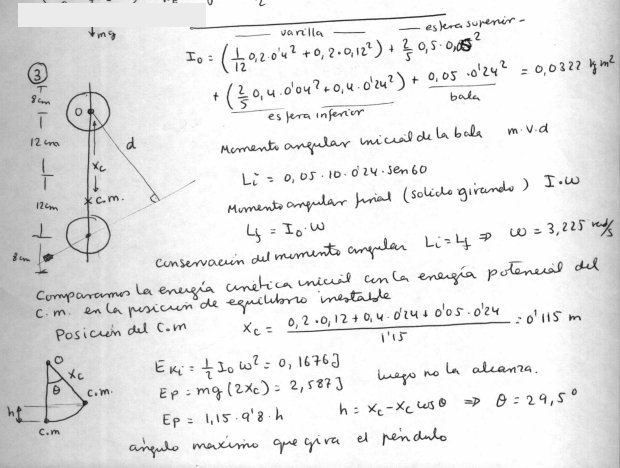 mg
varilla
esfera superior
I₀ = (1/12 0,2·0'4² + 0,2·0,12²) + 2/5 0,5·0,05²
③
+ (2/5 0,4·0'04² + 0,4·0'24²) + 0,05·0'24² = 0,0322 kg m²
esfera inferior
bala
8cm
O
12cm
d
xc
c.m.
12cm
8cm
Momento angular inicial de la bala m·v·d
Li = 0,05·10·0'24·sen60
Momento angular final (solido girando) I·ω
Lf = I₀·ω
conservacion del momento angular Li = Lf ⇒ ω = 3,225 rad/s
Comparamos la energía cinética inicial con la energía potencial del
c.m. en la posición de equilibrio inestable
Posición del C.m xc = 0,2·0,12 + 0,4·0'24 + 0'05·0'24 / 1'15 = 0'115 m
O
xc
θ
c.m.
h
c.m
EKi = 1/2 I₀ω² = 0,1676J
Ep = mg(2xc) = 2,587J luego no la alcanza.
Ep = 1,15·9'8·h h = xc - xc cosθ ⇒ θ = 29,5°
ángulo maximo que gira el péndulo